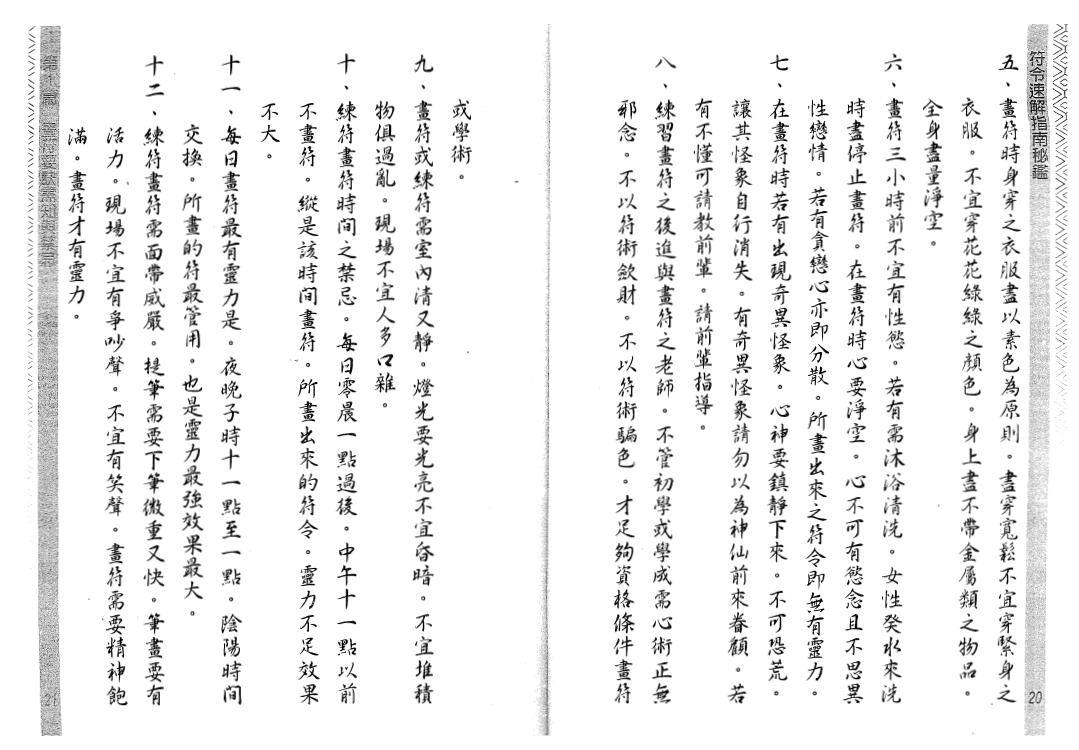 符令速解指南秘鑑
五、畫符時身穿之衣服盡以素色為原則。盡穿寬鬆不宜穿緊身之
衣服。不宜穿花花綠綠之顏色。身上盡不帶金屬類之物品。
全身盡量淨空。
六、畫符三小時前不宜有性慾。若有需沐浴清洗。女性癸水來洗
時盡停止畫符。在畫符時心要淨空。心不可有慾念且不思異
性戀情。若有貪戀心亦即分散。所畫出來之符令即無有靈力。
七、在畫符時若有出現奇異怪象。心神要鎮靜下來。不可恐荒。
讓其怪象自行消失。有奇異怪象請勿以為神仙前來眷顧。若
有不懂可請教前輩。請前輩指導。
八、練習畫符之後進與畫符之老師。不管初學或學成需心術正無
邪念。不以符術斂財。不以符術騙色。才足夠資格條件畫符
20
或學術。
九、畫符或練符需室內清又靜。燈光要光亮不宜昏暗。不宜堆積
物俱過亂。現場不宜人多口雜。
十、練符畫符時間之禁忌。每日零晨一點過後。中午十一點以前
不畫符。縱是該時間畫符。所畫出來的符令。靈力不足效果
不大。
十一、每日畫符最有靈力是。夜晚子時十一點至一點。陰陽時間
交換。所畫的符最管用。也是靈力最強效果最大。
十二、練符畫符需面帶威嚴。提筆需要下筆微重又快。筆畫要有
活力。現場不宜有爭吵聲。不宜有笑聲。畫符需要精神飽
滿。畫符才有靈力。
21